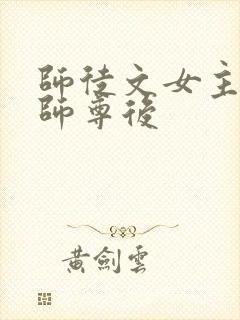 師徒文女主
師尊後
黃劍雲